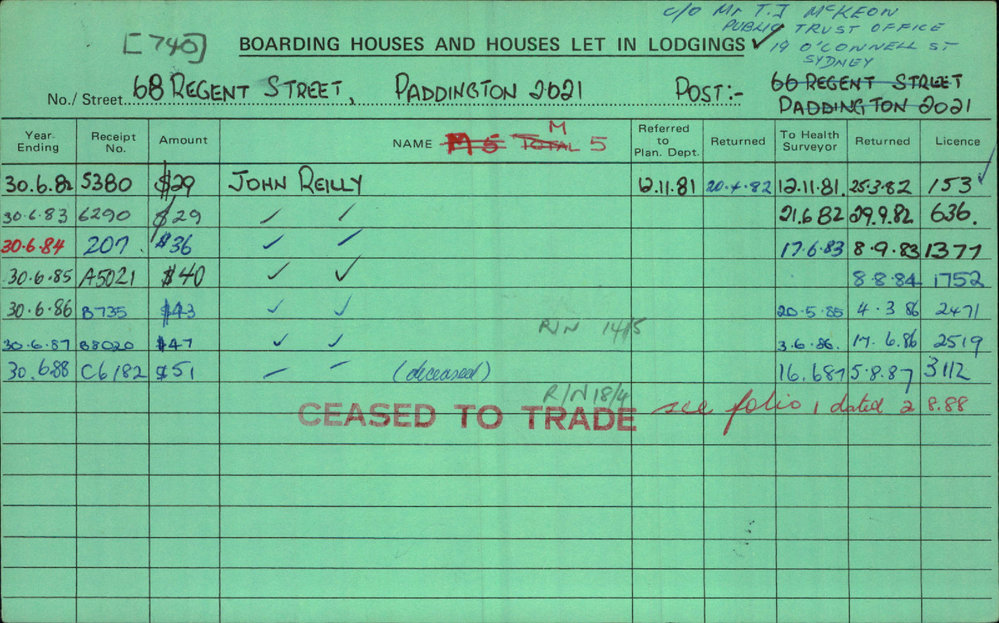 c/o Mr T.J McKEON
PUBLIC TRUST OFFICE
[746] BOARDING HOUSES AND HOUSES LET IN LODGINGS ✓ 19 O'CONNELL ST
SYDNEY
No./ Street 68 REGENT STREET, PADDINGTON 2021 POST:- 66 REGENT STREET
PADDINGTON 2021
Year Ending Receipt No. Amount NAME M 5 TOTAL M 5 Referred to Plan. Dept. Returned To Health Surveyor Returned Licence
30.6.82 5380 $29 JOHN REILLY 12.11.81 20.4.82 12.11.81. 25.3.82 153 ✓
30.6.83 6290 $29 ✓ ✓ 21.6.82 29.9.82 636.
30.6.84 207 $36 ✓ ✓ 17.6.83 8.9.83 1377
30.6.85 A5021 $40 ✓ ✓ 8.8.84 1752
30.6.86 B735 $43 ✓ ✓ 20.5.85 4.3.86 2471
R/N 14/5
30.6.87 B8020 $47 ✓ ✓ 3.6.86. 17.6.86 2519
30.6.88 C6182 $51 ✓ ✓ (deceased) 16.6.87 5.8.87 3112
R/N 18/4
CEASED TO TRADE see folio 1 dated 2 8.88